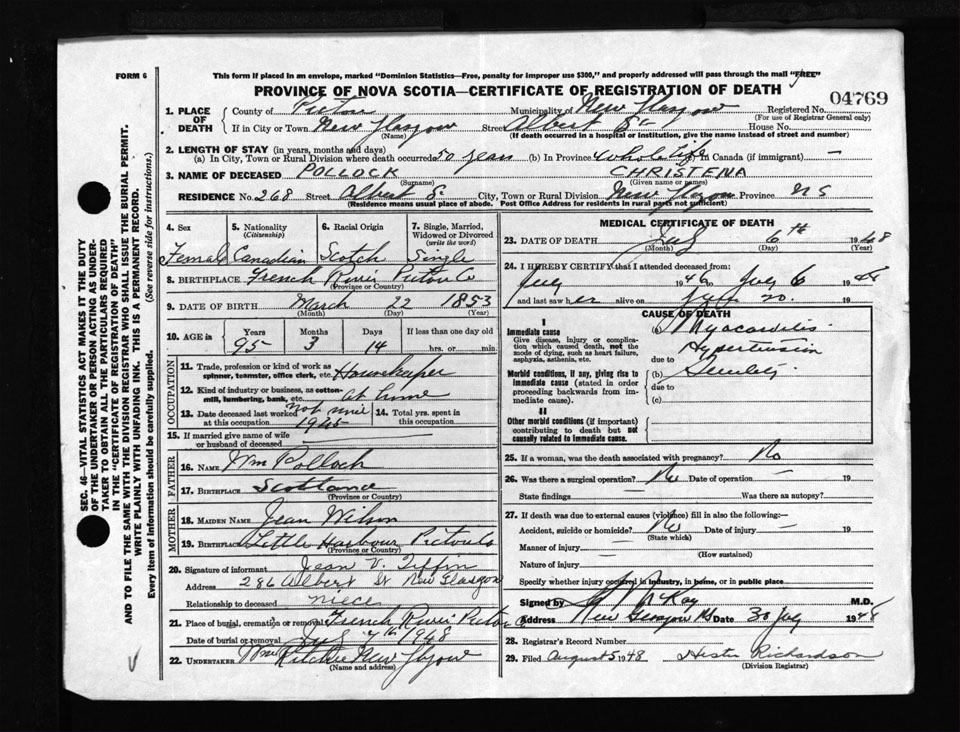 FORM 6
This form if placed in an envelope, marked "Dominion Statistics—Free, penalty for improper use $300," and properly addressed will pass through the mail "FREE"
PROVINCE OF NOVA SCOTIA—CERTIFICATE OF REGISTRATION OF DEATH
04769
1. PLACE OF DEATH
County of Pictou Municipality of New Glasgow Registered No.
(For use of Registrar General only)
If in City or Town New Glasgow Street Albert St House No.
(Name) (If death occurred in a hospital or institution, give the name instead of street and number)
2. LENGTH OF STAY (in years, months and days)
(a) In City, Town or Rural Division where death occurred 50 years (b) In Province whole life (c) in Canada (if immigrant) —
3. NAME OF DECEASED POLLOCK CHRISTENA
(Surname) (Given name or names)
RESIDENCE No. 268 Street Albert St City, Town or Rural Division New Glasgow Province N S
(Residence means usual place of abode. Post Office Address for residents in rural parts not sufficient)
4. Sex 5. Nationality (Citizenship) 6. Racial Origin 7. Single, Married, Widowed or Divorced (write the word)
Female Canadian Scotch Single
8. BIRTHPLACE French River Pictou Co
(Province or Country)
9. DATE OF BIRTH March 22 1853
(Month) (Day) (Year)
10. AGE in Years Months Days If less than one day old
95 3 14 hrs. or min.
OCCUPATION
11. Trade, profession or kind of work as spinner, teamster, office clerk, etc. Housekeeper
12. Kind of industry or business, as cotton mill, lumbering, bank, etc. at home
13. Date deceased last worked at this occupation not since 1945
14. Total yrs. spent in this occupation
15. If married give name of wife or husband of deceased
FATHER
16. NAME Wm Pollock
17. BIRTHPLACE Scotland
(Province or Country)
MOTHER
18. MAIDEN NAME Jean Wilson
19. BIRTHPLACE Little Harbour Pictou Co
(Province or Country)
20. Signature of informant Jean V. Tiffin
Address 286 Albert St New Glasgow
Relationship to deceased niece
21. Place of burial, cremation or removal French River Pictou Co
Date of burial or removal July 7th 1948
22. UNDERTAKER Wm Ritchie New Glasgow
(Name and address)
MEDICAL CERTIFICATE OF DEATH
23. DATE OF DEATH July 6th 1948
(Month) (Day) (Year)
24. I HEREBY CERTIFY that I attended deceased from:
July 1946 to July 6 1948
and last saw her alive on 19
CAUSE OF DEATH
I
Immediate cause
Give disease, injury or complication which caused death, not the mode of dying, such as heart failure, asphyxia, asthenia, etc.
(a) Myocarditis
Hypertension
due to Senility
Morbid conditions, if any, giving rise to immediate cause (stated in order proceeding backwards from immediate cause).
(b)
due to
(c)
II
Other morbid conditions (if important) contributing to death but not causally related to immediate cause.
25. If a woman, was the death associated with pregnancy? No
26. Was there a surgical operation? No Date of operation — 19
State findings — Was there an autopsy?
27. If death was due to external causes (violence) fill in also the following:—
Accident, suicide or homicide? No Date of injury — 19
(State which)
Manner of injury —
(How sustained)
Nature of injury
Specify whether injury occurred in industry, in home, or in public place
Signed by McKay M.D.
Address New Glasgow NS Date 30 July 1948
28. Registrar's Record Number
29. Filed August 5 1948 Hester Richardson
(Division Registrar)
SEC. 46—VITAL STATISTICS ACT MAKES IT THE DUTY
OF THE UNDERTAKER OR PERSON ACTING AS UNDER-
TAKER TO OBTAIN ALL THE PARTICULARS REQUIRED
IN THE "CERTIFICATE OF REGISTRATION OF DEATH"
AND TO FILE THE SAME WITH THE DIVISION REGISTRAR WHO SHALL ISSUE THE BURIAL PERMIT.
WRITE PLAINLY WITH UNFADING INK. THIS IS A PERMANENT RECORD.
Every item of information should be carefully supplied. (See reverse side for instructions.)